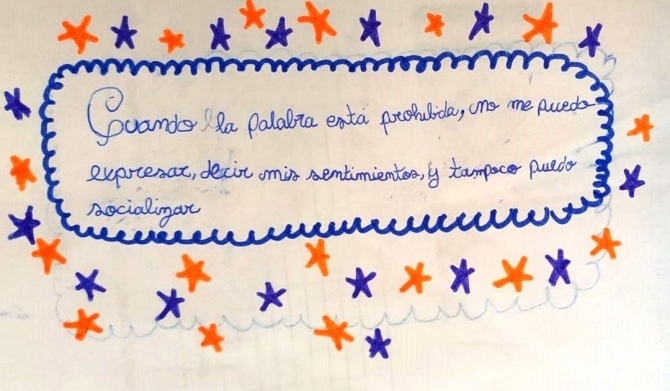 Cuando la palabra está prohibida, no me puedo
expresar, decir mis sentimientos, y tampoco puedo
socializar